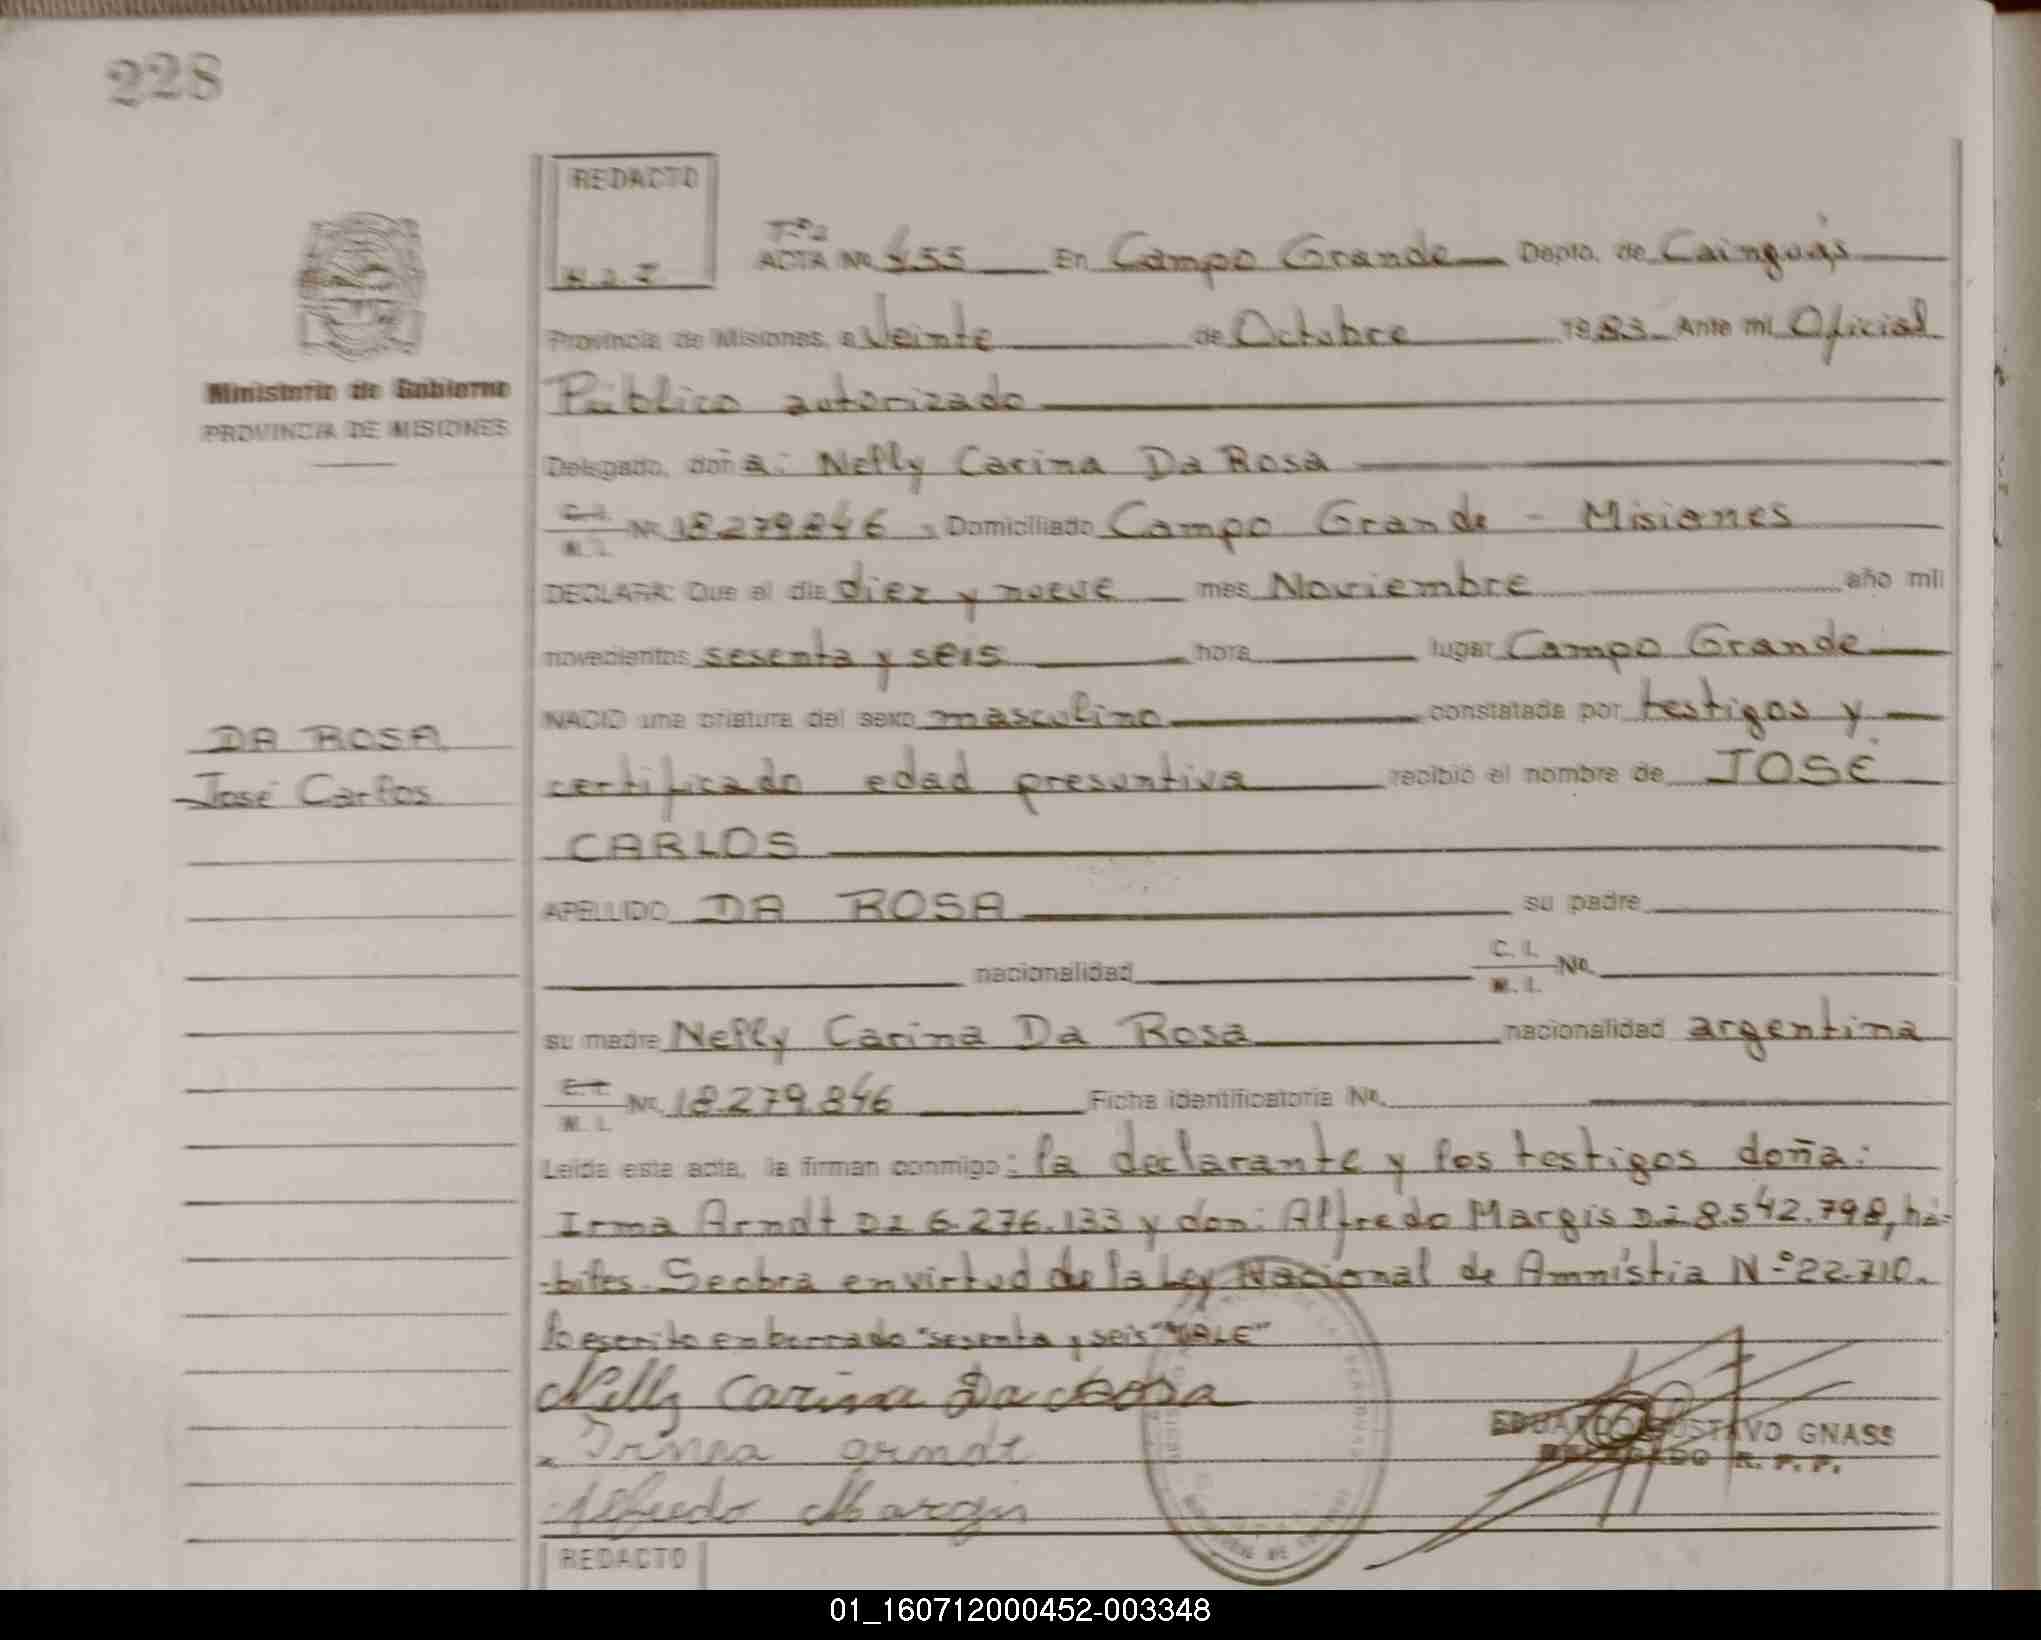 228
REDACTO
Tº2
ACTA Nº 455 En Campo Grande Depto. de Cainguás
Provincia de Misiones, a Veinte de Octubre 1983 Ante mi Oficial
Ministerio de Gobierno
PROVINCIA DE MISIONES
Público autorizado
Delegado, doña: Nelly Carina Da Rosa
C. I.
M. I. Nº 18.279.846, Domiciliado Campo Grande - Misiones
DECLARA: Que el día diez y nueve mes Noviembre año mil
novecientos sesenta y seis hora lugar Campo Grande
NACIO una criatura del sexo masculino constatada por testigos y
DA ROSA
José Carlos
certificado edad presuntiva recibió el nombre de JOSÉ
CARLOS
APELLIDO DA ROSA su padre
nacionalidad C. I.
M. I. Nº
su madre Nelly Carina Da Rosa nacionalidad argentina
C. I.
M. I. Nº 18.279.846 Ficha identificatoria Nº
Leída esta acta, la firman conmigo: la declarante y los testigos doña:
Irma Arndt DI 6.276.133 y don: Alfredo Margis DI 8.542.798, há-
biles. Se obra en virtud de la Ley Nacional de Amnistia Nº 22.710.
lo escrito en borrado "sesenta y seis" "VALE"
Nelly Carina Da Rosa
Irmea arndt
Alfredo Margis
EDUARDO GUSTAVO GNASS
DELEGADO R. P. P.
REDACTO
01_160712000452-003348